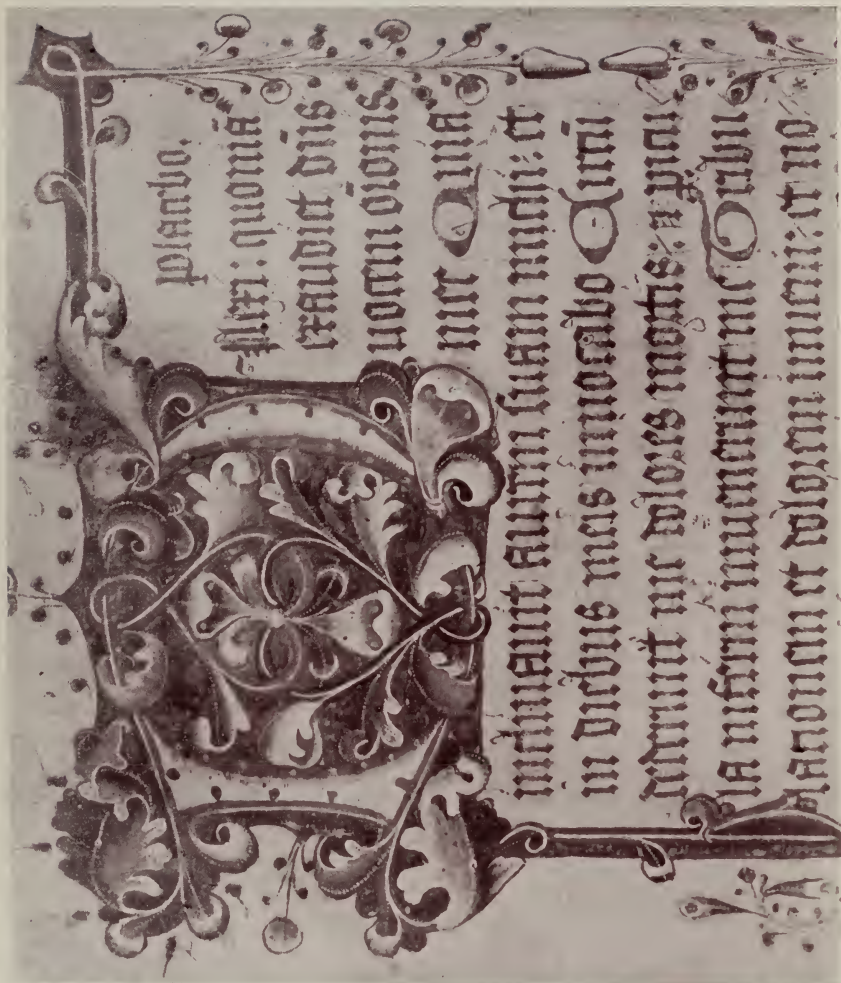 placebo.
ilexi: quoniā
exaudiet dn̄s
uocem or̄onis
mee Quia
inclinauit aurem suam michi: et
in diebus meis inuocabo Circū
dederunt me dolores mortis: et ꝑicu
la inferni inuenerunt me Tribu
lationem et dolorem inueni: et no